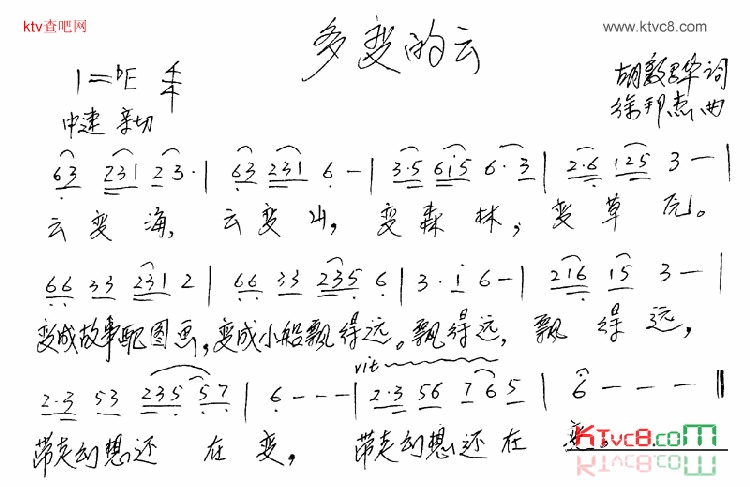 ktv查吧网
www.ktvc8.com
多变的云
1=♭E 4/4
胡敦骅词
中速 亲切
徐邦杰曲
63 231 23·| 63 231 6 -| 3·5 615 6·3| 2·6 125 3 -|
云变海,云变山,变森林,变草原。
66 33 2312| 66 33 2356| 3·i 6-| 216 15 3-|
变成故事配图画,变成小船飘得远。飘得远,飘得远,
rit
2·3 53 235 57| 6 - - -| 2·3 56 76 5| 6 - - -‖
带走幻想还在变,带走幻想还在变。
KTvc8.com